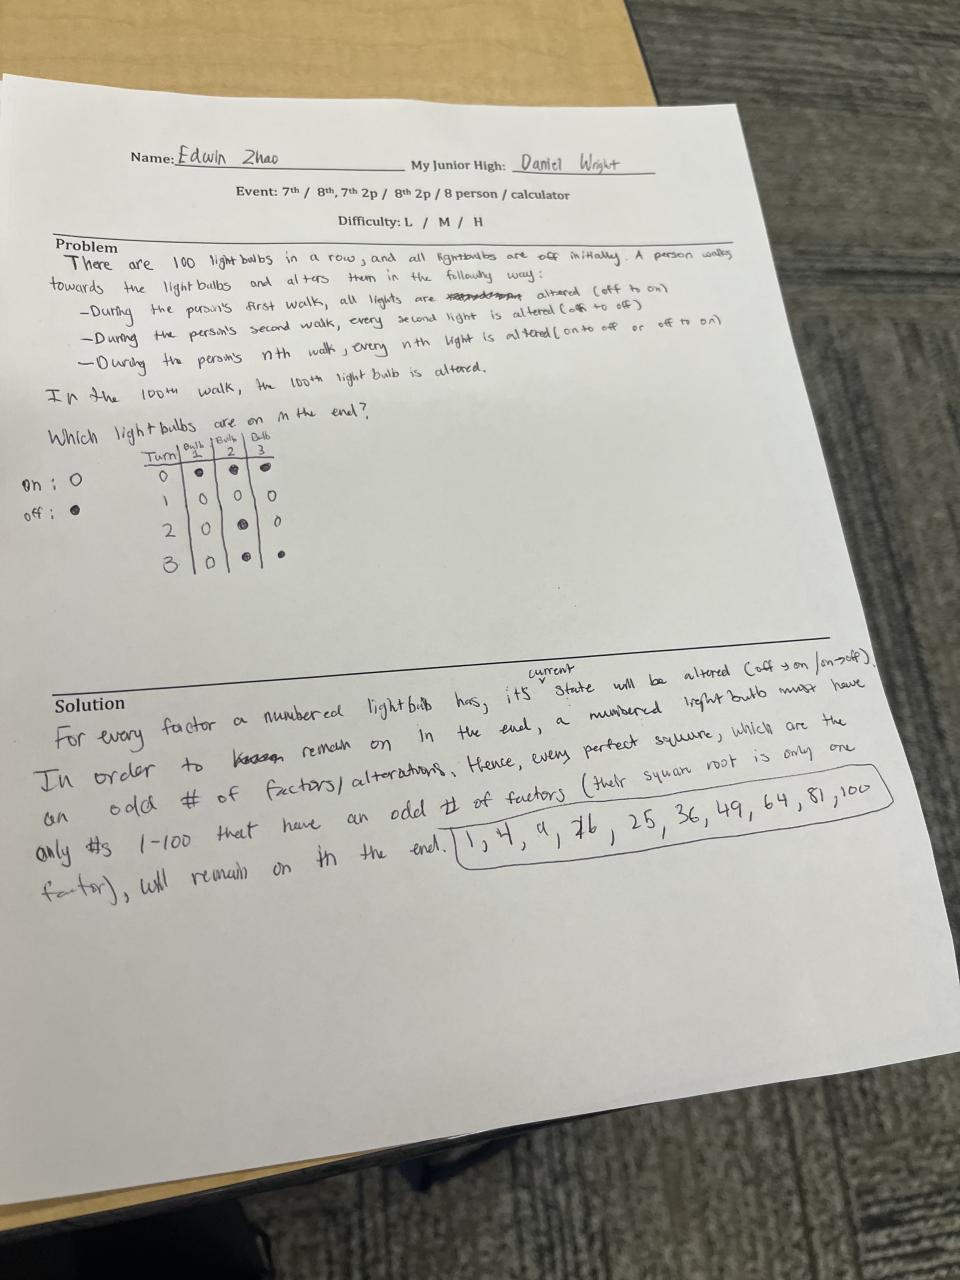 Name: Edwin Zhao My Junior High: Daniel Wright
Event: 7th / 8th, 7th 2p / 8th 2p / 8 person / calculator
Difficulty: L / M / H
Problem
There are 100 light bulbs in a row, and all lightbulbs are off initially. A person walks
towards the lightbulbs and alters them in the following way:
-During the person's first walk, all lights are altered (off to on)
-During the person's second walk, every second light is altered (on to off)
-During the person's nth walk, every nth light is altered (on to off or off to on)
In the 100th walk, the 100th light bulb is altered.
Which lightbulbs are on in the end?
on: O
off: ●
Turn Bulb 1 Bulb 2 Bulb 3
0 ● ● ●
1 O O O
2 O ● O
3 O ● ●
Solution
For every factor a numbered lightbulb has, its current state will be altered (off → on / on → off).
In order to remain on in the end, a numbered lightbulb must have
an odd # of factors/alterations. Hence, every perfect square, which are the
only #s 1-100 that have an odd # of factors (their square root is only one
factor), will remain on in the end. 1, 4, 9, 16, 25, 36, 49, 64, 81, 100